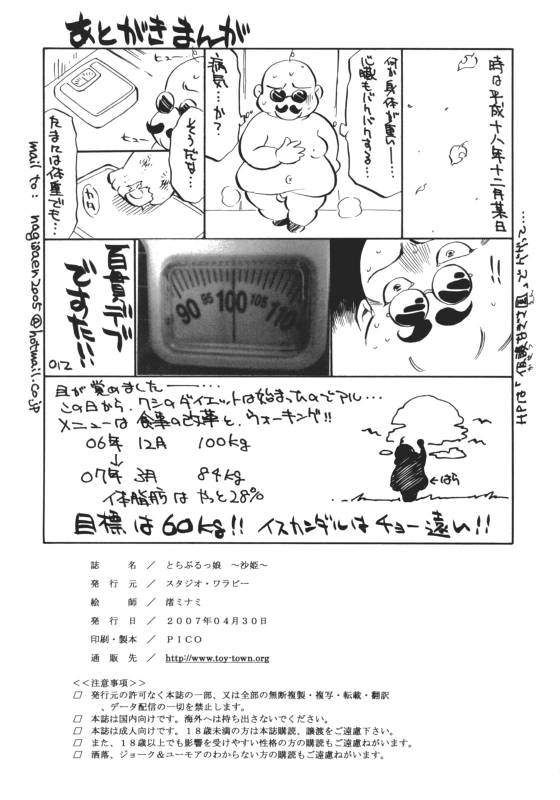 あとがきまんが
時は平成十八年十二月某日
何か身体が重い…
心臓もバクバクする…
病気…か?
ヒュー
ヒュー
そうだな…
たまには体重でも…
カタ
!!
90 95 100 105 110
百貫デブ
ですな!!
012
目が覚めました――…
この日から、ワシのダイエットは始まったのでアル…
メニューは食事の改革と、ウォーキング!!
06年 12月 100kg
↓
07年 3月 84kg
体脂肪は やっと28%
←はら
目標は60kg!! イスカンダルはチョー遠い!!
mail to: nagisaen2005@hotmail.co.jp
誌 名 / とらぶるっ娘 ~沙姫~
発 行 元 / スタジオ・ワラビー
絵 師 / 渚ミナミ
発 行 日 / 2007年04月30日
印刷・製本 / PICO
通 販 先 / http://www.toy-town.org
<<注意事項>>
□ 発行元の許可なく本誌の一部、又は全部の無断複製・複写・転載・翻訳
、データ配信の一切を禁止します。
□ 本誌は国内向けです。海外へは持ち出さないでください。
□ 本誌は成人向けです。18歳未満の方は本誌購読、譲渡をご遠慮下さい。
□ また、18歳以上でも影響を受けやすい性格の方の購読もご遠慮ねがいます。
□ 洒落、ジョーク&ユーモアのわからない方の購読もご遠慮ねがいます。